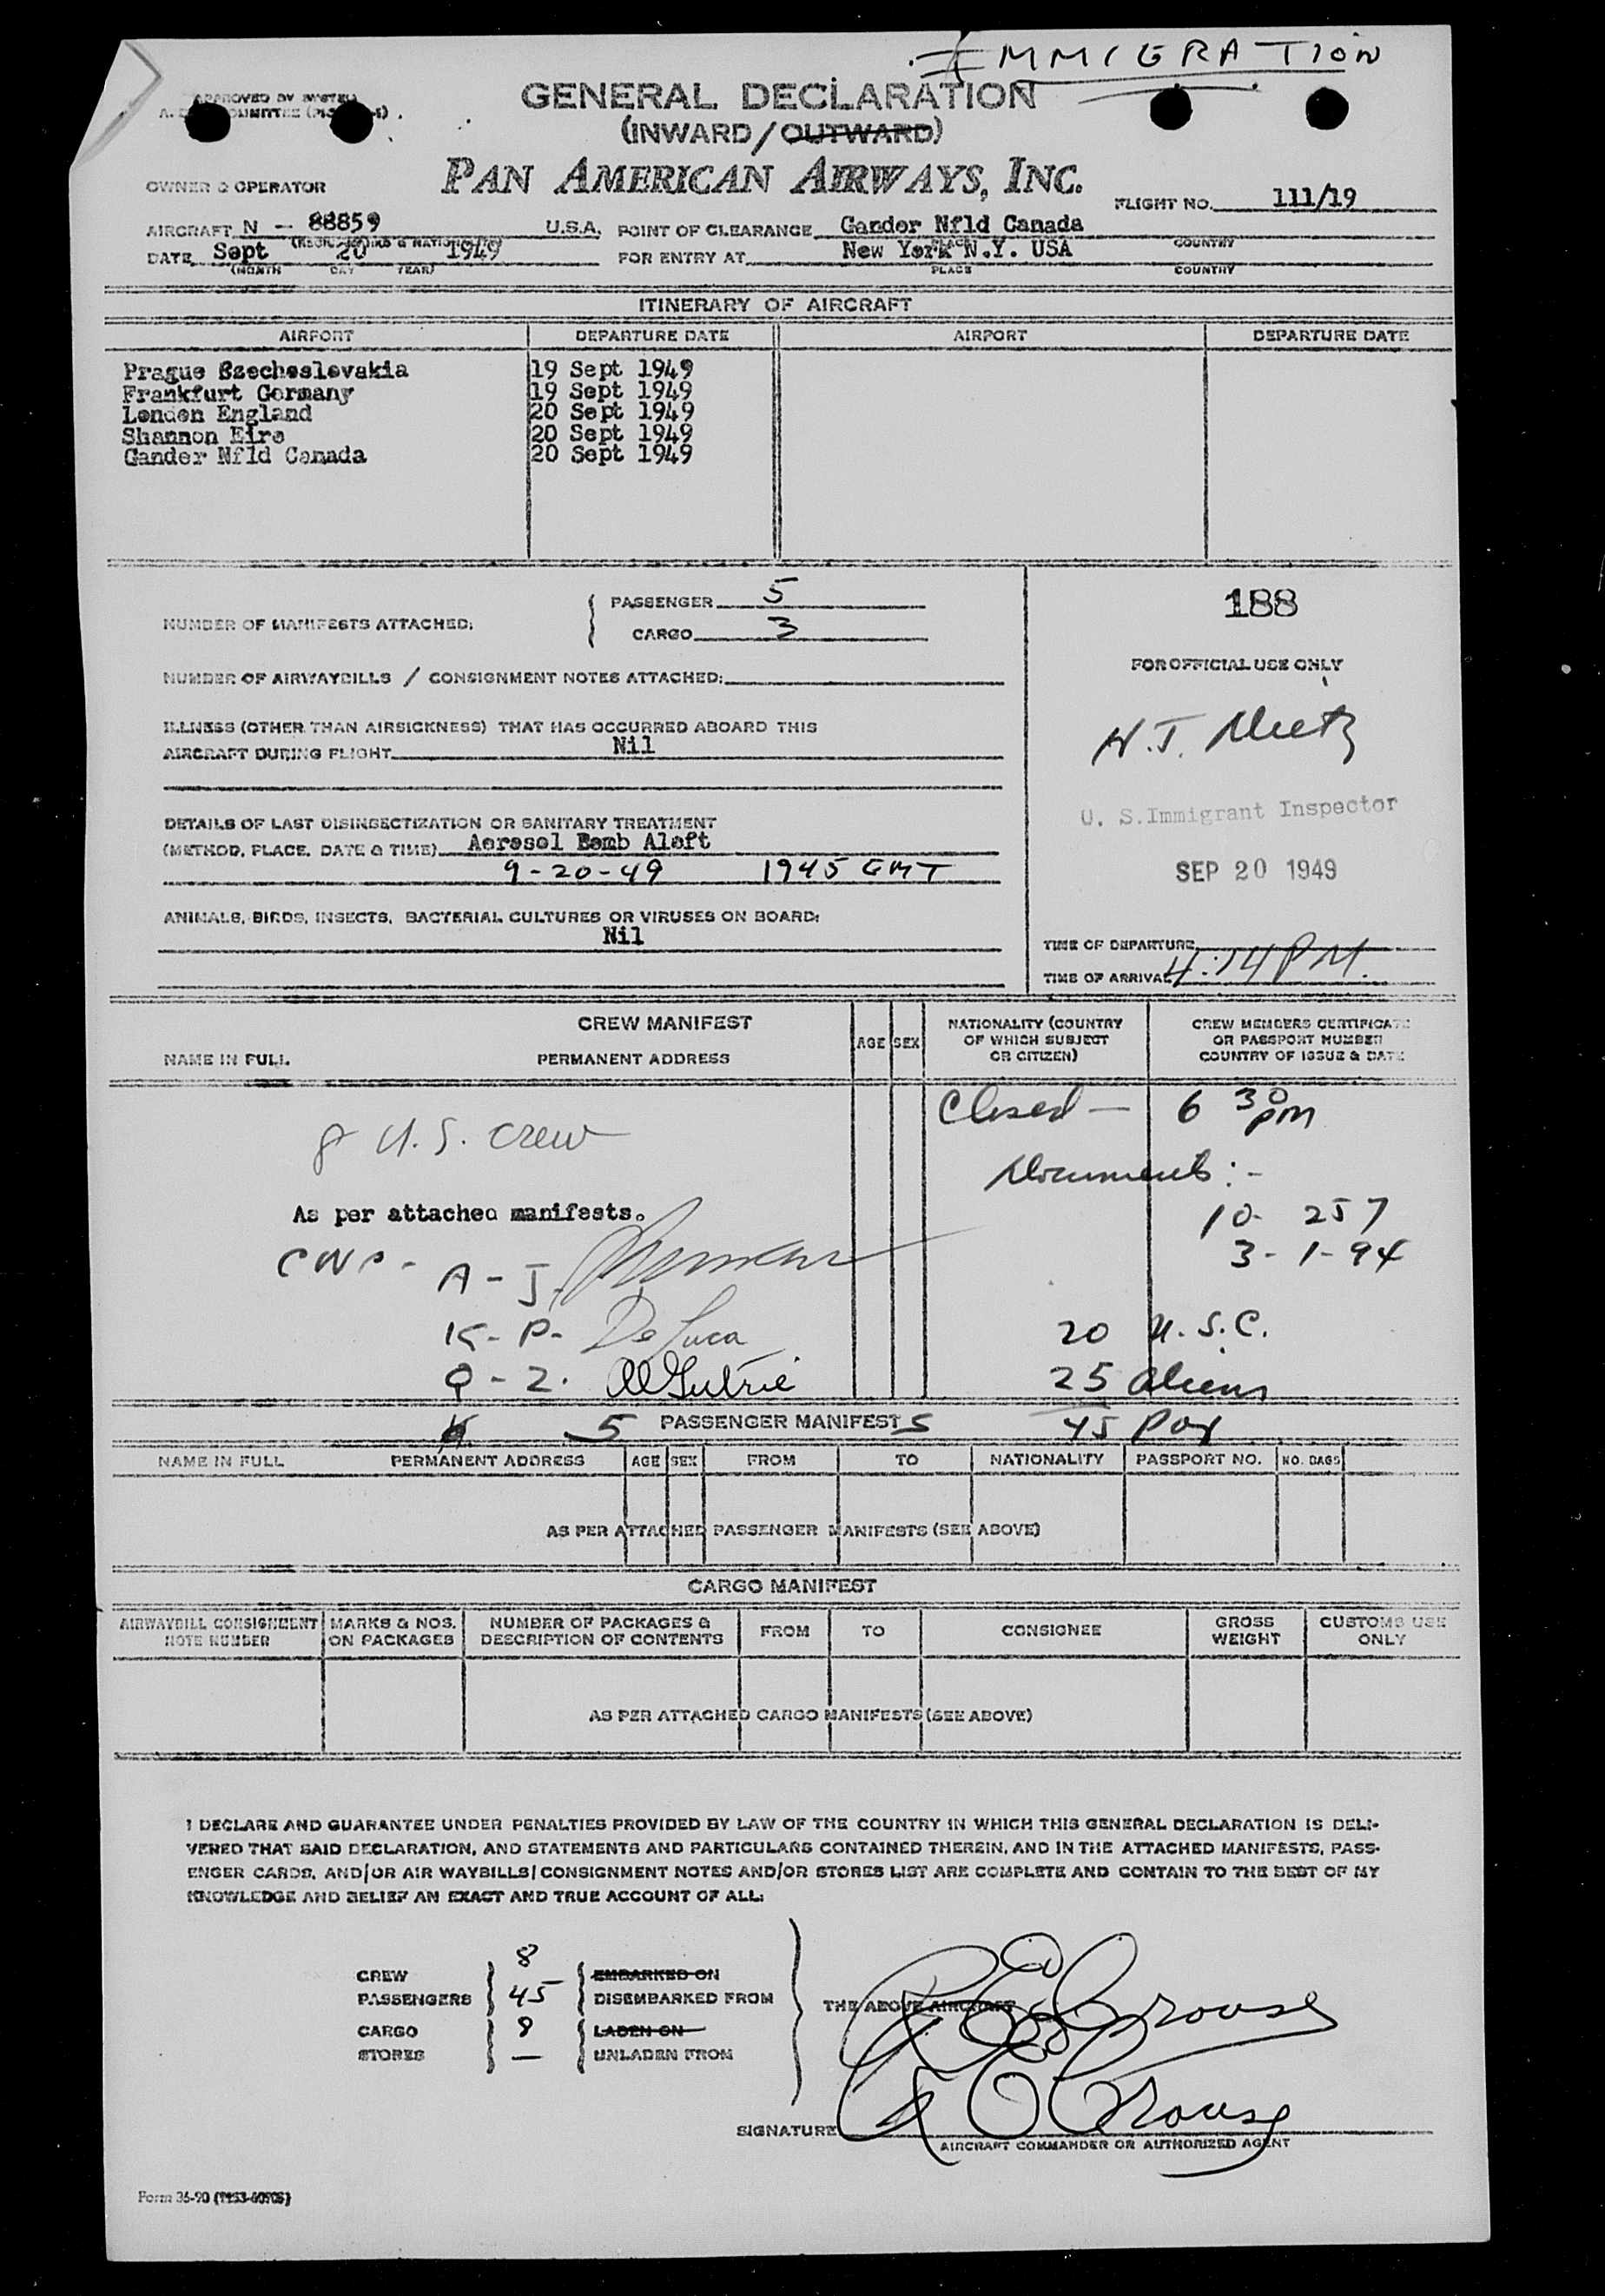 IMMIGRATION
APPROVED BY
GENERAL DECLARATION
(INWARD/OUTWARD)
PAN AMERICAN AIRWAYS, INC.
OWNER & OPERATOR
FLIGHT NO. 111/19
AIRCRAFT N - 88859 U.S.A. POINT OF CLEARANCE Gander Nfld Canada
PLACE COUNTRY
DATE Sept 20 1949 FOR ENTRY AT New York N.Y. USA
(MONTH DAY YEAR) PLACE COUNTRY
ITINERARY OF AIRCRAFT
AIRPORT DEPARTURE DATE AIRPORT DEPARTURE DATE
Prague Szechoslovakia 19 Sept 1949
Frankfurt Germany 19 Sept 1949
London England 20 Sept 1949
Shannon Eire 20 Sept 1949
Gander Nfld Canada 20 Sept 1949
NUMBER OF MANIFESTS ATTACHED: PASSENGER 5
CARGO 3
188
FOR OFFICIAL USE ONLY
NUMBER OF AIRWAYBILLS / CONSIGNMENT NOTES ATTACHED:
ILLNESS (OTHER THAN AIRSICKNESS) THAT HAS OCCURRED ABOARD THIS
AIRCRAFT DURING FLIGHT Nil
H.J.
U. S. Immigrant Inspector
SEP 20 1949
DETAILS OF LAST DISINSECTIZATION OR SANITARY TREATMENT
(METHOD, PLACE, DATE & TIME) Aerosol Bomb Aloft
9-20-49 1945 GMT
ANIMALS, BIRDS, INSECTS, BACTERIAL CULTURES OR VIRUSES ON BOARD:
Nil
TIME OF DEPARTURE
TIME OF ARRIVAL 4:14 PM.
CREW MANIFEST
NAME IN FULL PERMANENT ADDRESS AGE SEX
NATIONALITY (COUNTRY
OF WHICH SUBJECT
OR CITIZEN)
CREW MEMBERS CERTIFICATE
OR PASSPORT NUMBER
COUNTRY OF ISSUE & DATE
Closed — 6 30 pm
8 U.S. crew
Documents :-
As per attached manifests.
10- 257
3- 1-94
A - J.
K - P - De Luca
20 U.S.C.
Q - Z.
25 aliens
5 PASSENGER MANIFEST S 45 pax
NAME IN FULL PERMANENT ADDRESS AGE SEX FROM TO NATIONALITY PASSPORT NO. NO. BAGS
AS PER ATTACHED PASSENGER MANIFESTS (SEE ABOVE)
CARGO MANIFEST
AIRWAYBILL CONSIGNMENT NOTE NUMBER MARKS & NOS. ON PACKAGES NUMBER OF PACKAGES & DESCRIPTION OF CONTENTS FROM TO CONSIGNEE GROSS WEIGHT CUSTOMS USE ONLY
AS PER ATTACHED CARGO MANIFESTS (SEE ABOVE)
I DECLARE AND GUARANTEE UNDER PENALTIES PROVIDED BY LAW OF THE COUNTRY IN WHICH THIS GENERAL DECLARATION IS DELI-
VERED THAT SAID DECLARATION, AND STATEMENTS AND PARTICULARS CONTAINED THEREIN, AND IN THE ATTACHED MANIFESTS, PASS-
ENGER CARDS, AND/OR AIR WAYBILLS/CONSIGNMENT NOTES AND/OR STORES LIST ARE COMPLETE AND CONTAIN TO THE BEST OF MY
KNOWLEDGE AND BELIEF AN EXACT AND TRUE ACCOUNT OF ALL:
CREW 8 EMBARKED ON
PASSENGERS 45 DISEMBARKED FROM
THE ABOVE AIRCRAFT
CARGO 8 LADEN ON
STORES — UNLADEN FROM
R E Crouse
SIGNATURE R E Crouse
AIRCRAFT COMMANDER OR AUTHORIZED AGENT
Form 36-90